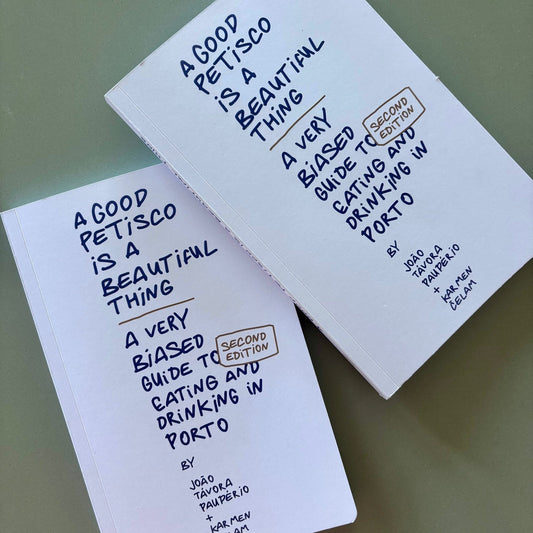 A GOOD
PETISCO
IS A
BEAUTIFUL
THING
A VERY
BIASED
GUIDE TO
EATING AND
DRINKING IN
PORTO
SECOND
EDITION
BY
JOÃO
TÁVORA
PAUPÉRIO
+
KARMEN
ČELAM
A GOOD
PETISCO
IS A
BEAUTIFUL
THING
A VERY
BIASED
GUIDE TO
EATING AND
DRINKING IN
PORTO
SECOND
EDITION
BY
JOÃO
TÁVORA
PAUPÉRIO
+
KARMEN
ČELAM